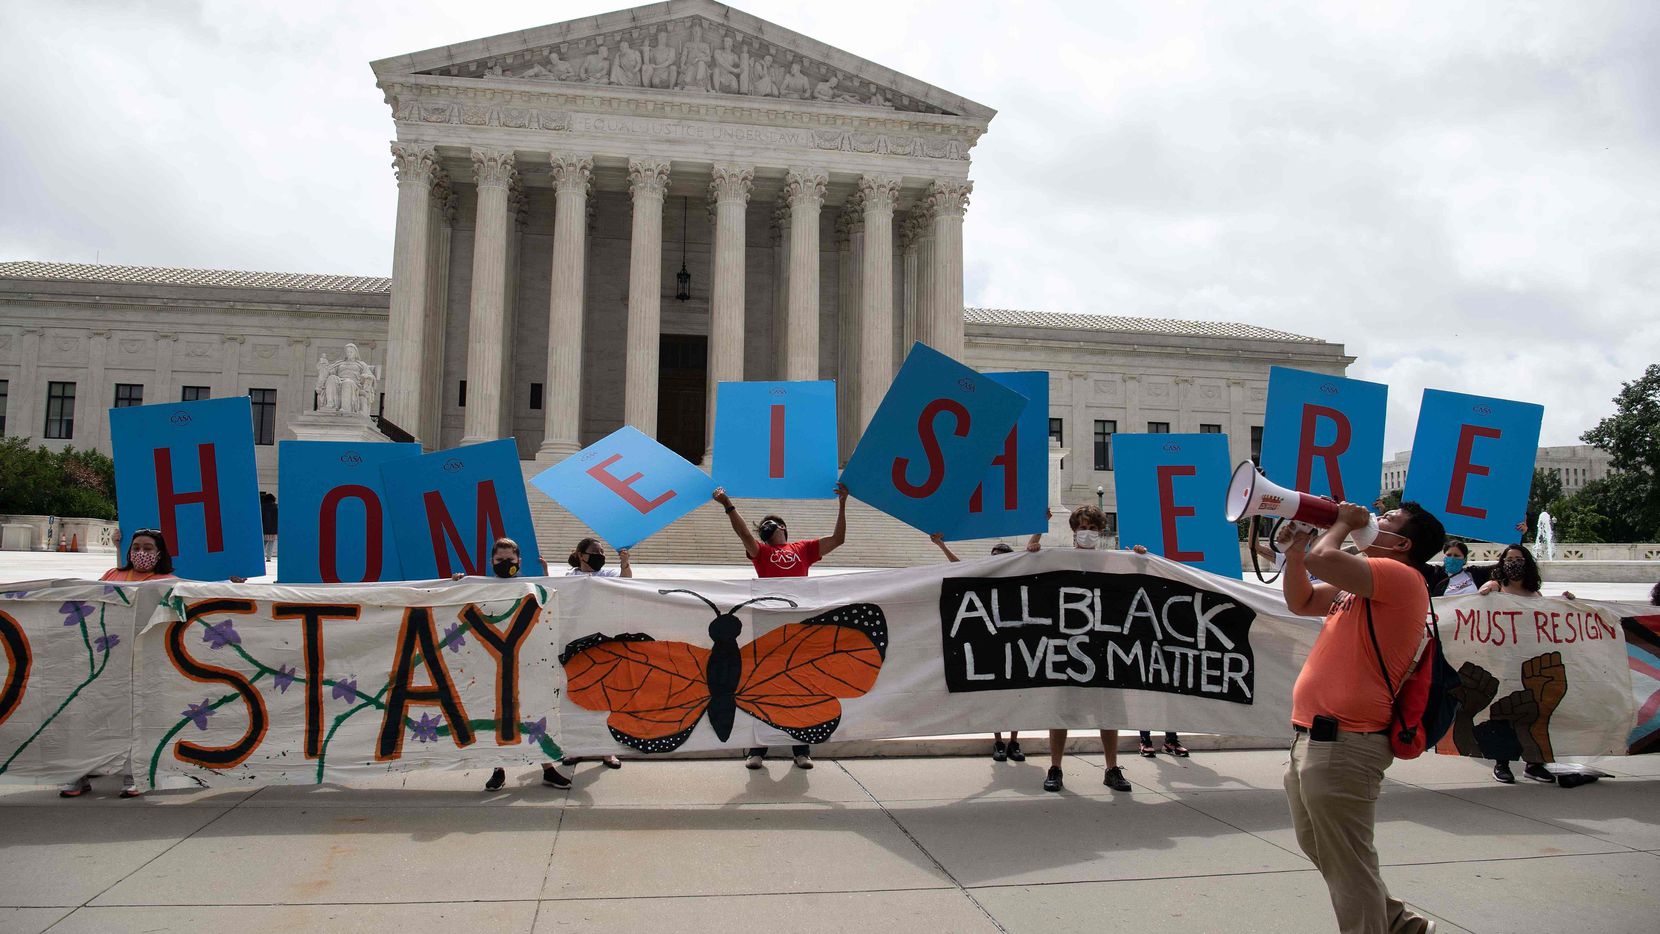 EQUAL JUSTICE UNDER LAW
HOME IS HERE
CASA
CASA
CASA
CASA
CASA
CASA
CASA
CASA
CASA
STAY
ALL BLACK
LIVES MATTER
MUST RESIGN